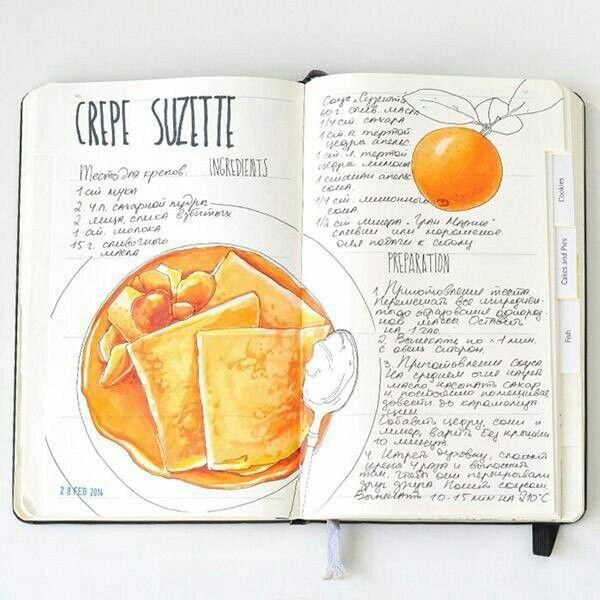 CREPE SUZETTE
INGREDIENTS
Тесто для крепов:
1 ст мука
2 ч.л. сахарной пудра
2 яйца, слегка взбитых
1 ст. молока
15 г. сливочного
масла
28 FEB 2014
Соус "Сузетта"
60 г слив. масло
1/4 ст сахара
1 ст. л. тертой
цедры апельс.
1 ст. л. тертой
цедры лимона
1 стакан апельс.
сока.
1/4 ст лимонного
сока.
1/2 ст ликера "Гран Марнье"
сливки или мороженое
для подачи к столу
PREPARATION
1. Приготовление теста.
Перемешать все ингредиен-
ты до образования однород-
ной массы. Оставить
на 1 час.
2. Выпекать по ~1 мин.
с обеих сторон.
3. Приготовления соуса
На среднем огне нагреть
масло, насыпать сахар
и постоянно помешивая
довести до карамелиза
ции
Добавить цедру, соки и
ликер, варить без крышки
10 минут
4 Нагреть духовку, сложить
крепы 4 раза и выложить
там, чтобы они перекрывали
друг друга. Полить соусом.
Выпекать 10-15 мин на 210°C
Cookies
Cakes and Pies
Fish